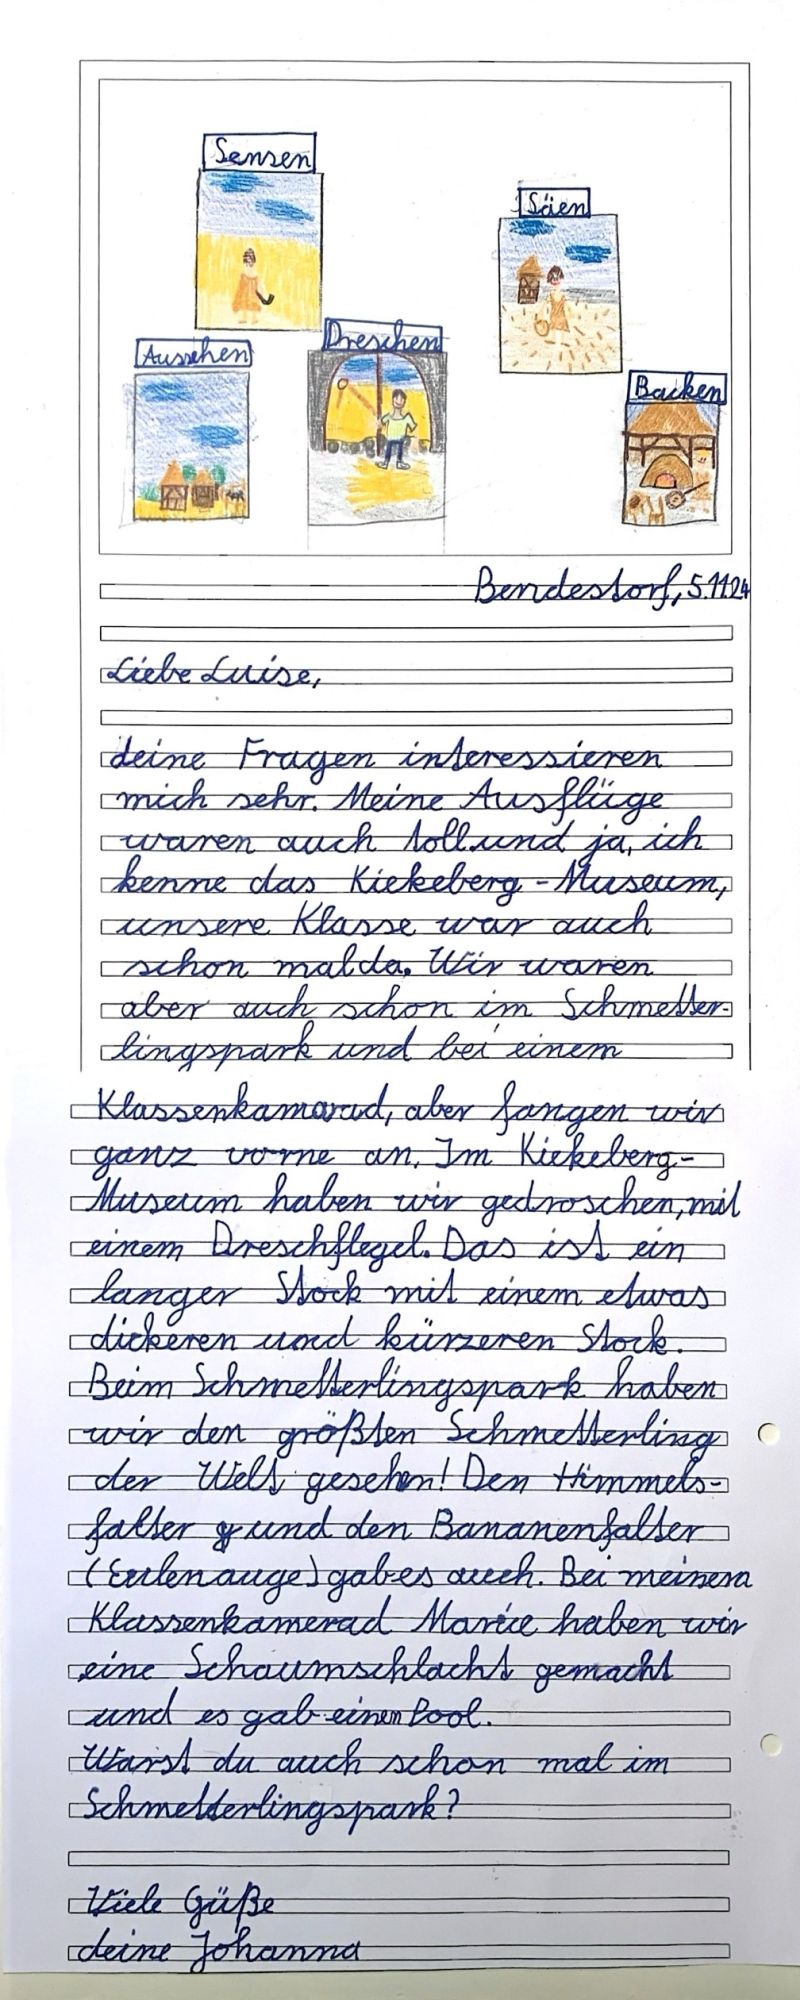 Sensen
Säen
Dreschen
Aussehen
Backen
Bendestorf, 5.11.24
Liebe Luise,
deine Fragen interessieren
mich sehr. Meine Ausflüge
waren auch toll und ja, ich
kenne das Kiekeberg-Museum,
unsere Klasse war auch
schon mal da. Wir waren
aber auch schon im Schmetter-
lingspark und bei einem
Klassenkamarad, aber fangen wir
ganz vorne an. Im Kiekeberg-
Museum haben wir gedroschen, mit
einem Dreschflegel. Das ist ein
langer Stock mit einem etwas
dickeren und kürzeren Stock.
Beim Schmetterlingspark haben
wir den größten Schmetterling
der Welt gesehen! Den Himmels-
falter und den Bananenfalter
(Eulenauge) gab es auch. Bei meinem
Klassenkamerad haben wir
eine Schaumschlacht gemacht
und es gab einen Pool.
Warst du auch schon mal im
Schmetterlingspark?
Viele Güße
deine Johanna